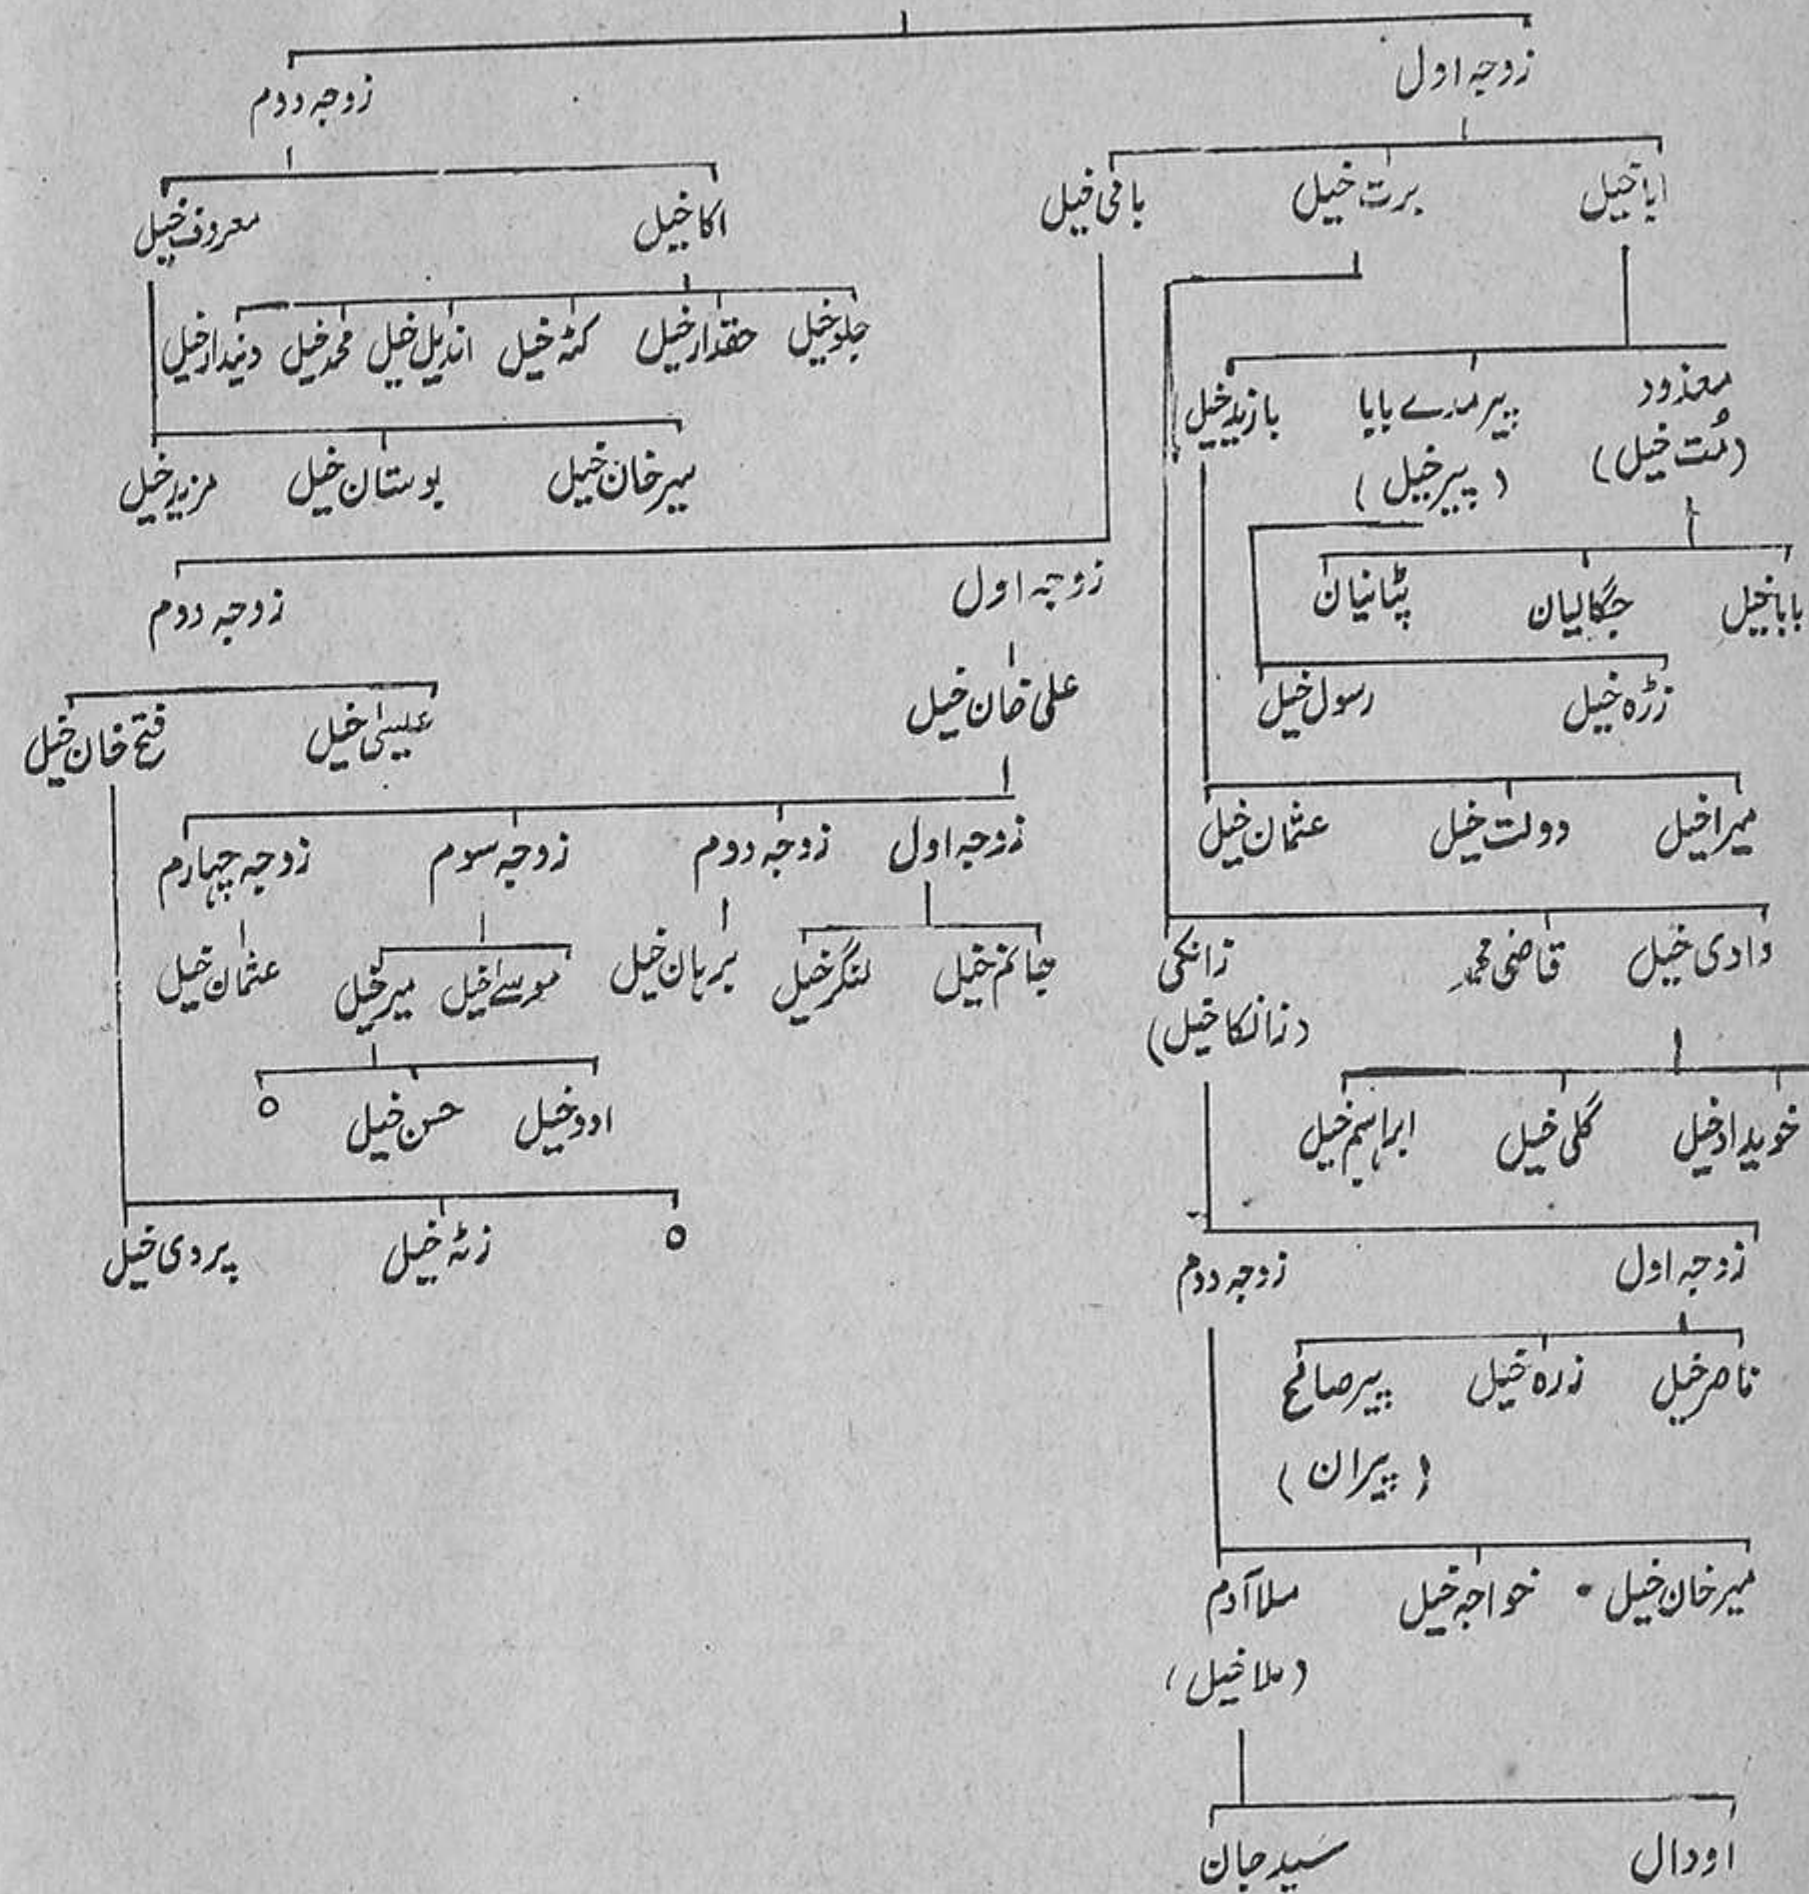 زوجہ اول
زوجہ دوم
ابا خیل
برت خیل
بامی خیل
اکا خیل
معروف خیل
جلو خیل
حقدار خیل
کٹہ خیل
اندیل خیل
محمد خیل
دیندار خیل
معذود
(مُت خیل)
پیر مدے بابا
(پیر خیل)
بازید خیل
میر خان خیل
بوستان خیل
مزید خیل
بابا خیل
جگالیان
پٹانیان
زوجہ اول
زوجہ دوم
زڑہ خیل
رسول خیل
علی خان خیل
عیسیٰ خیل
فتح خان خیل
میرا خیل
دولت خیل
عثمان خیل
زوجہ اول
زوجہ دوم
زوجہ سوم
زوجہ چہارم
دادی خیل
قاضی محمد
زانکی
(زانکا خیل)
جانم خیل
لنگر خیل
برہان خیل
موسےٰ خیل
میر خیل
عثمان خیل
خویداد خیل
گلی خیل
ابراہیم خیل
ادو خیل
حسن خیل
o
o
زٹہ خیل
پردی خیل
زوجہ اول
زوجہ دوم
ناصر خیل
زرہ خیل
پیر صالح
(پیران)
میر خان خیل
خواجہ خیل
ملا آدم
(ملا خیل)
اودال
سَید جان